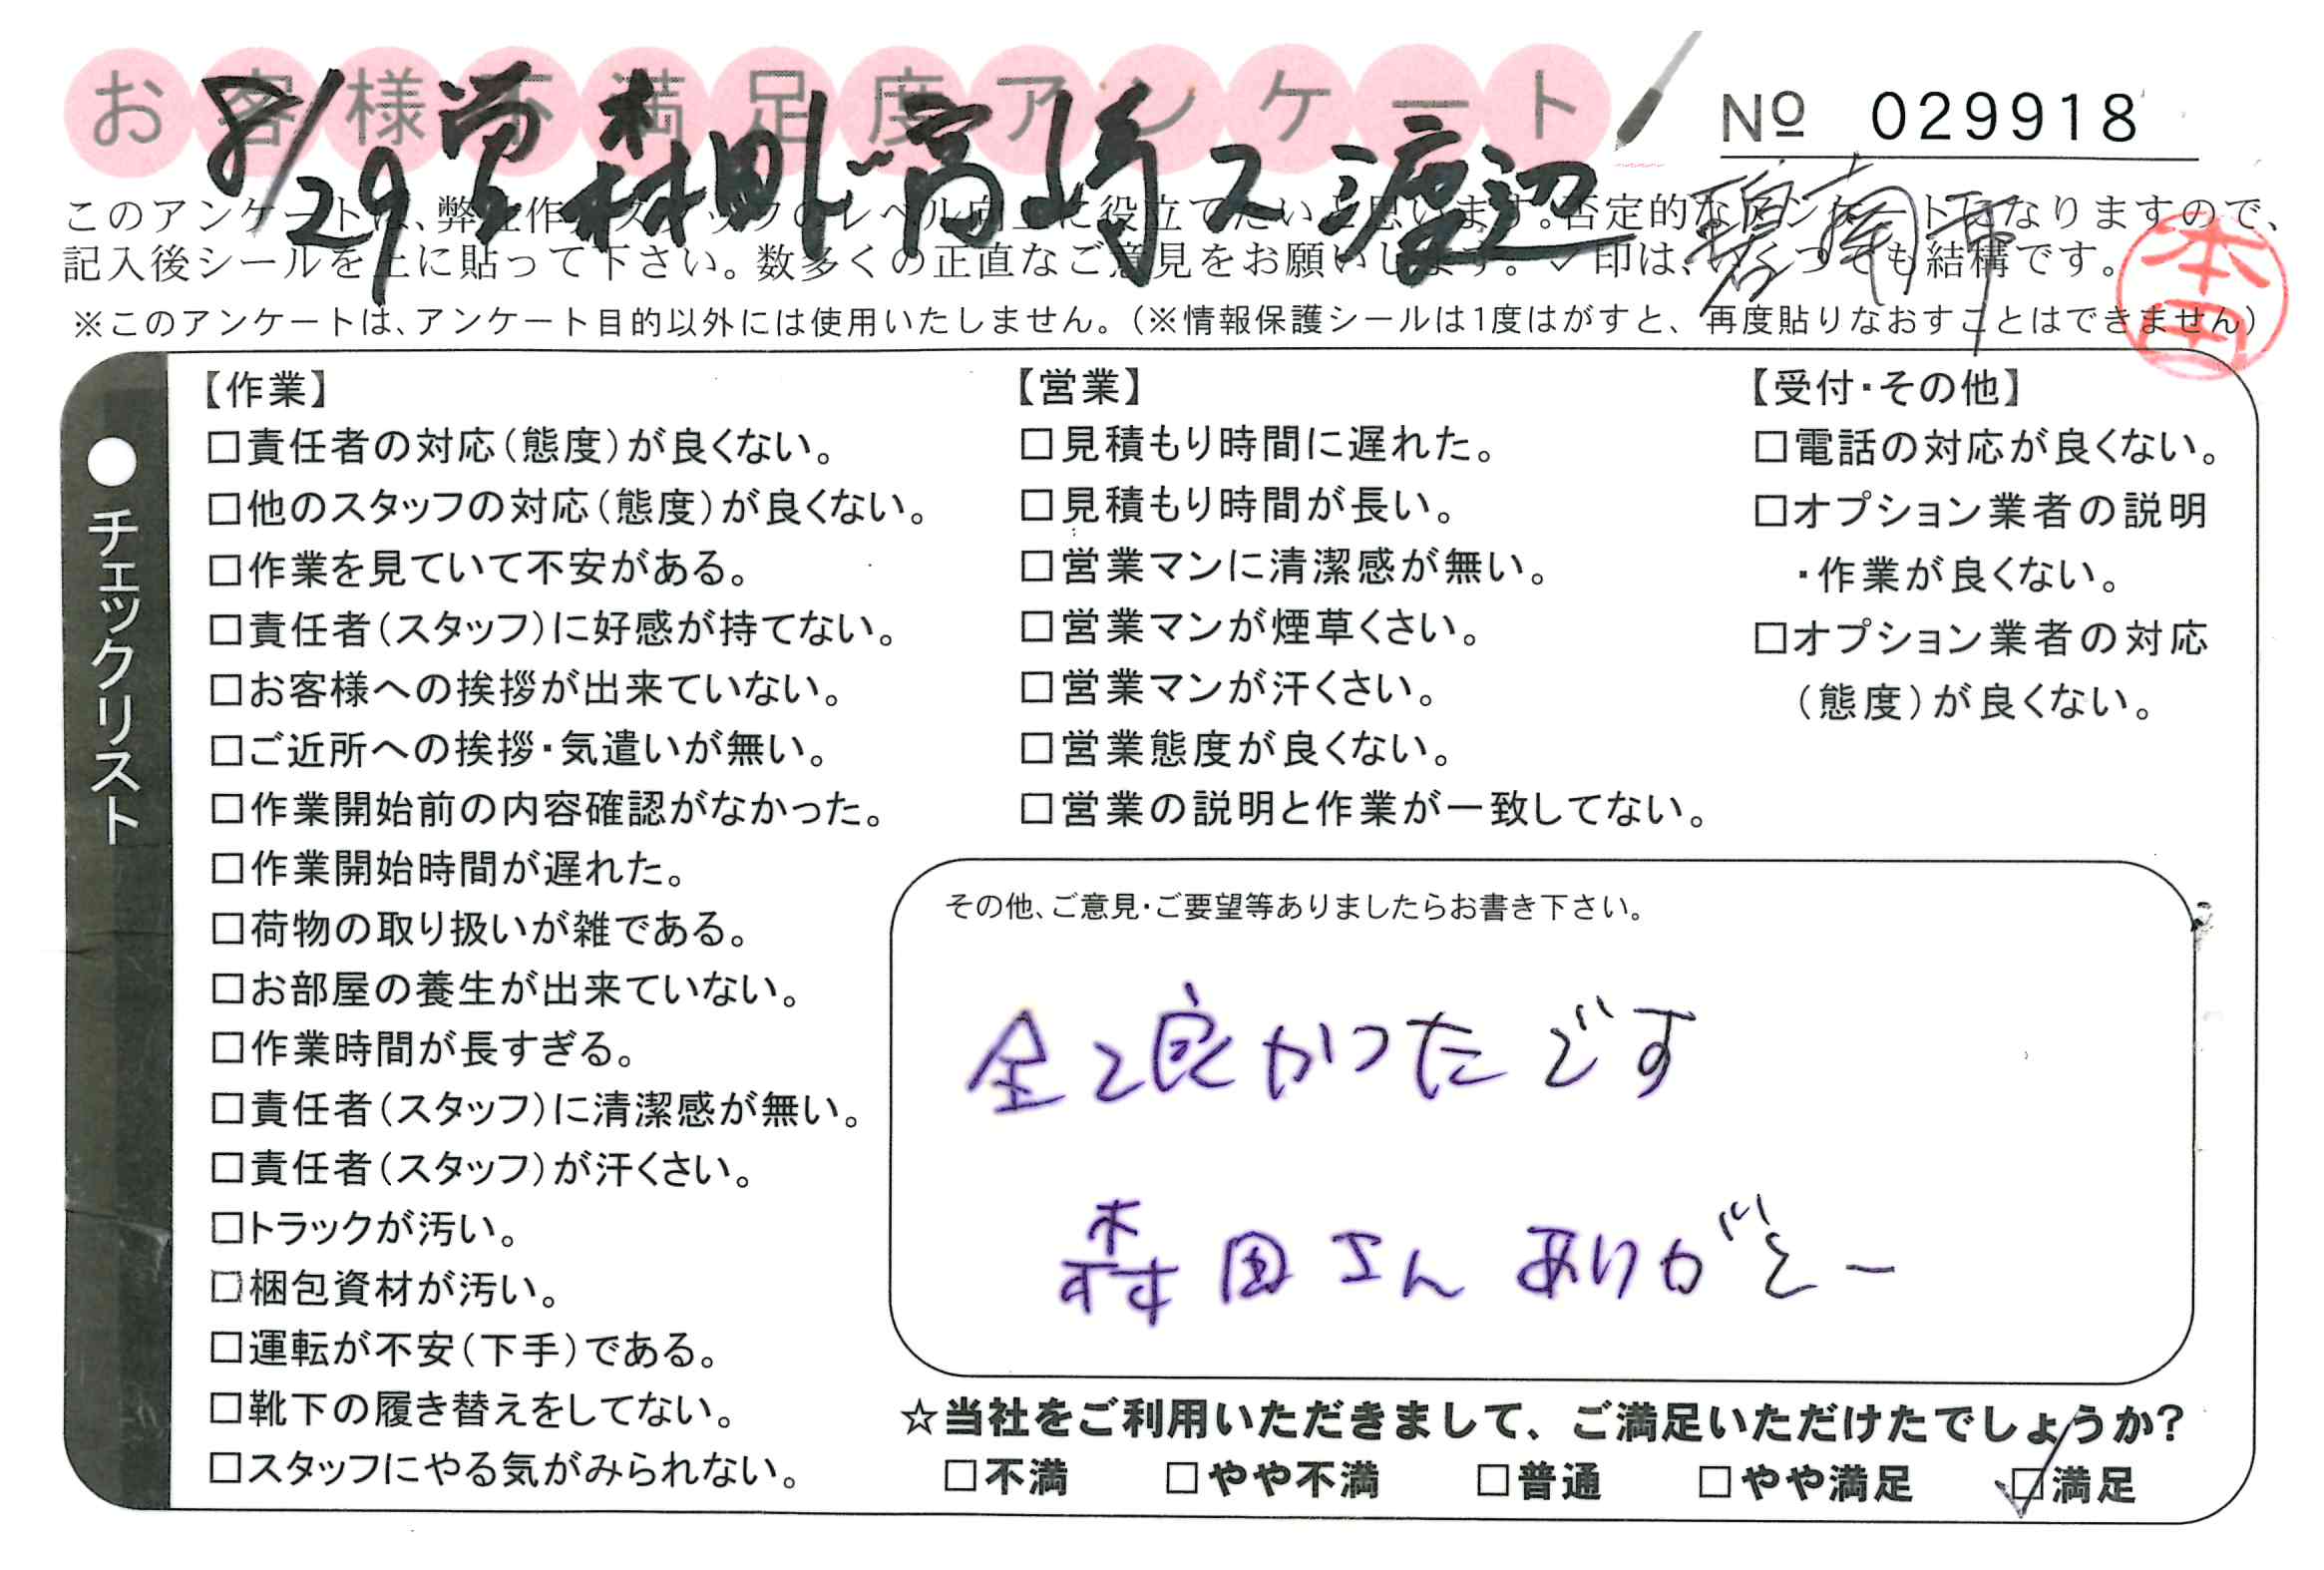 お客様不満足度アンケート
№ 029918
8/29 営 森田 ド 高崎 ス 渡辺
碧南市
このアンケートは、弊社作業スタッフのレベル向上に役立てたいと思います。否定的なアンケートになりますので、
記入後シールを上に貼って下さい。数多くの正直なご意見をお願いします。✓印は、いくつでも結構です。
※このアンケートは、アンケート目的以外には使用いたしません。(※情報保護シールは1度はがすと、再度貼りなおすことはできません)
本田
●チェックリスト
【作業】
□責任者の対応(態度)が良くない。
□他のスタッフの対応(態度)が良くない。
□作業を見ていて不安がある。
□責任者(スタッフ)に好感が持てない。
□お客様への挨拶が出来ていない。
□ご近所への挨拶・気遣いが無い。
□作業開始前の内容確認がなかった。
□作業開始時間が遅れた。
□荷物の取り扱いが雑である。
□お部屋の養生が出来ていない。
□作業時間が長すぎる。
□責任者(スタッフ)に清潔感が無い。
□責任者(スタッフ)が汗くさい。
□トラックが汚い。
□梱包資材が汚い。
□運転が不安(下手)である。
□靴下の履き替えをしてない。
□スタッフにやる気がみられない。
【営業】
□見積もり時間に遅れた。
□見積もり時間が長い。
□営業マンに清潔感が無い。
□営業マンが煙草くさい。
□営業マンが汗くさい。
□営業態度が良くない。
□営業の説明と作業が一致してない。
【受付・その他】
□電話の対応が良くない。
□オプション業者の説明
・作業が良くない。
□オプション業者の対応
(態度)が良くない。
その他、ご意見・ご要望等ありましたらお書き下さい。
全て良かったです
森田さんありがとー
☆当社をご利用いただきまして、ご満足いただけたでしょうか?
□不満 □やや不満 □普通 □やや満足 ☑満足